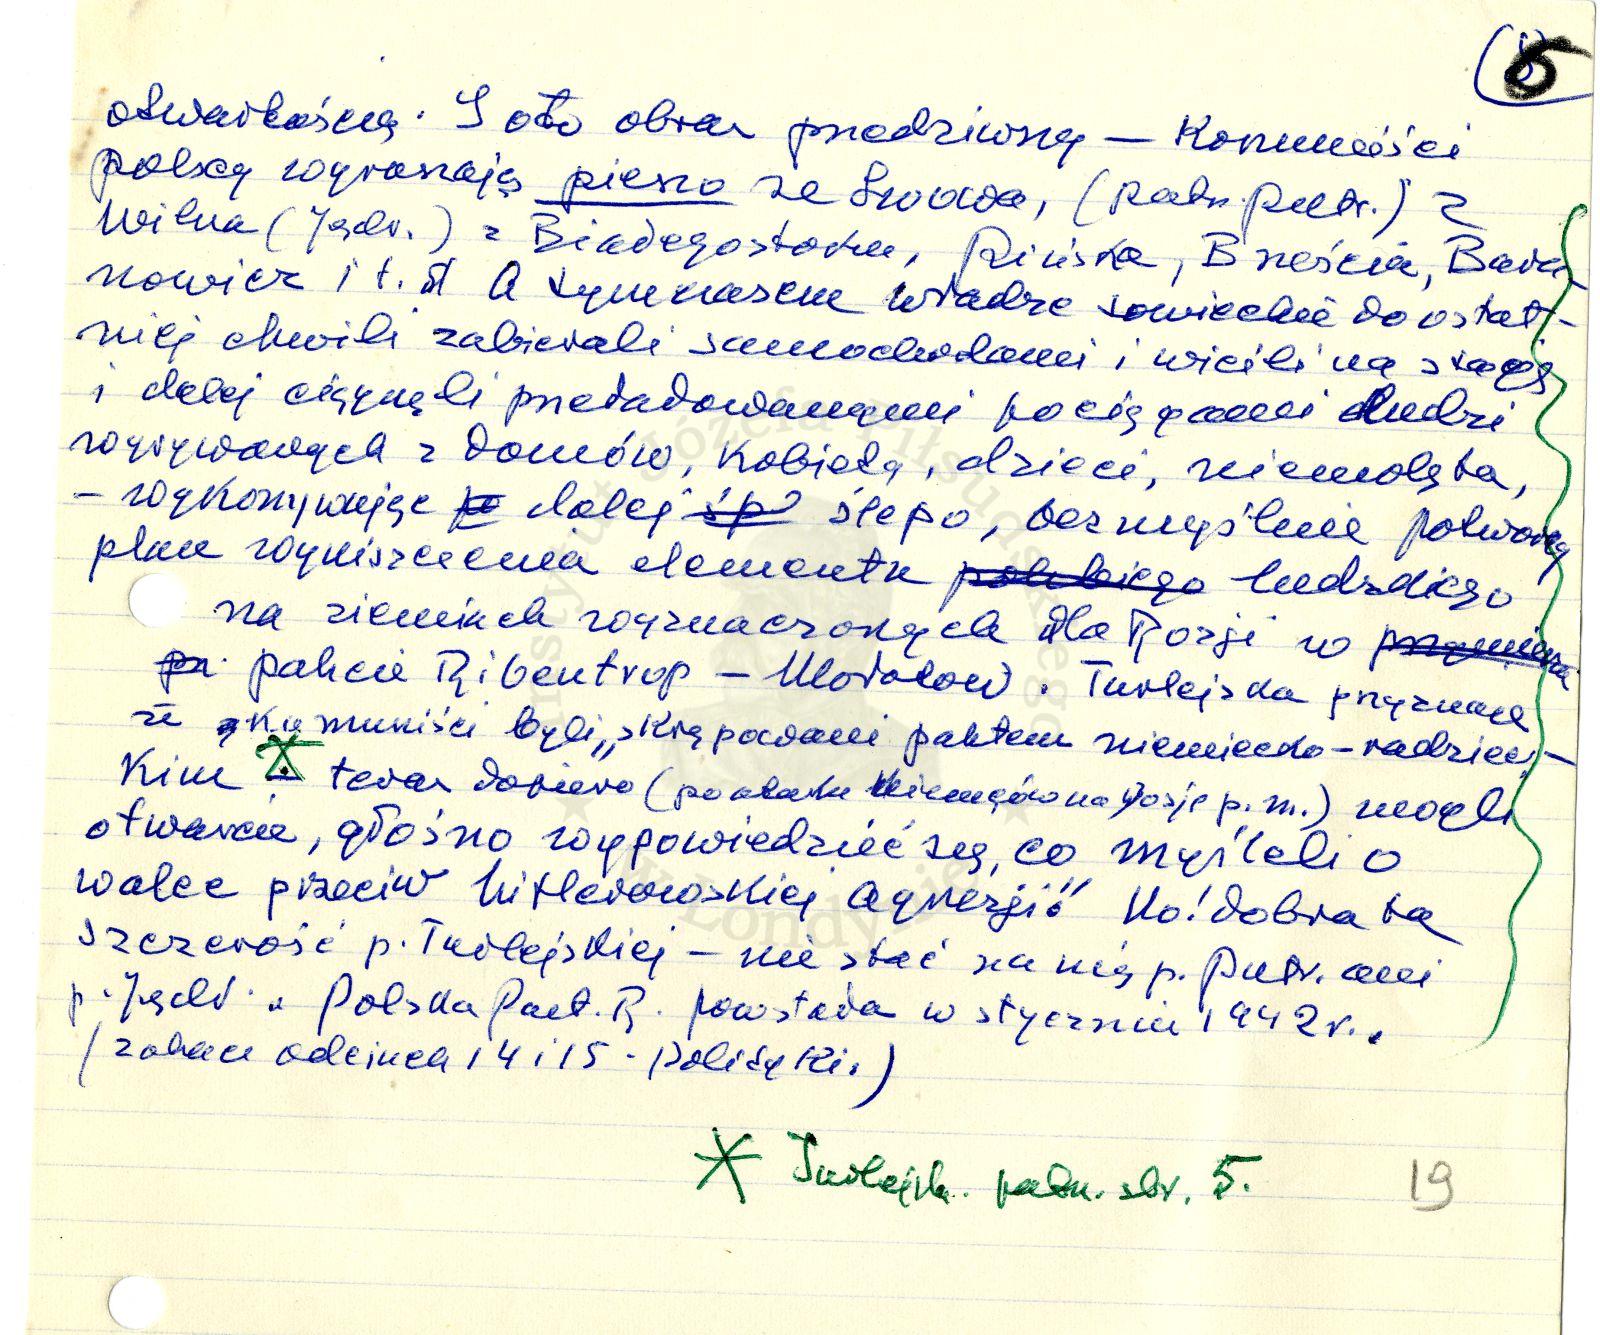 5
otwartością. I oto obraz przedziwny — Komuniści
polscy wyruszają pieszo ze Lwowa, (patrz. Putr.) z
Wilna (Jędr.) z Białegostoku, Pińska, Brześcia, Bara-
nowicz i t. d A tymczasem władze sowieckie do ostat-
niej chwili zabierali samochodami i wieźli na stację
i dalej ciągnęli przeładowanymi pociągami ludzi
wyrywanych z domów, Kobiety, dzieci, niemolęta,
— wykonywając dalej ślepo, bezmyślnie potworny
plan wyniszczenia elementu polskiego ludzkiego
na ziemiach wyznaczonych dla Rosji w
pakcie Ribentrop — Mołotow. Turlejska przyznaje
że Komuniści byli „skrępowani paktem niemiecko-radziec-
kim * teraz dopiero (po ataku Niemców na Rosję p. m.) mogli
otwarcie, głośno wypowiedzieć się, co myśleli o
walce przeciw hitlerowskiej agresji" No! dobra ta
szczerość p. Turlejskiej — nie stać na nią p. Putr. ani
p. Jędr. Polska Part. R. powstała w styczniu 1942 r..
(zobacz odcinea 14 i 15 - Polityki.)
* Turlejsk. patrz. str. 5.
19
Instytut Józefa Piłsudskiego
w Londynie